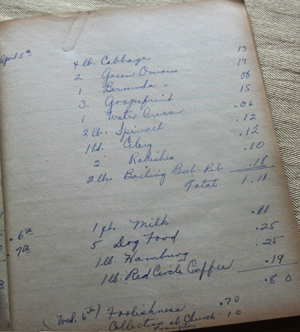 April 5th
4 lb. Cabbage 13
2 Green Onions 17
1 Bermuda " 08
3 Grapefruit 15
1 Water Cress .06
2 lb. Spinach .12
1 hd. Celery .12
2 Radishes .10
2 lbs. Boiling Beef-Rib .18
Total 1.11
. 6th 1 pt. Milk .11
7th 5 Dog Food .25
1 lb. Hamburg .25
1 lb. Red Circle Coffee .19
.80
(Wed. 6th) Foolishness .70
Collection at Church .10